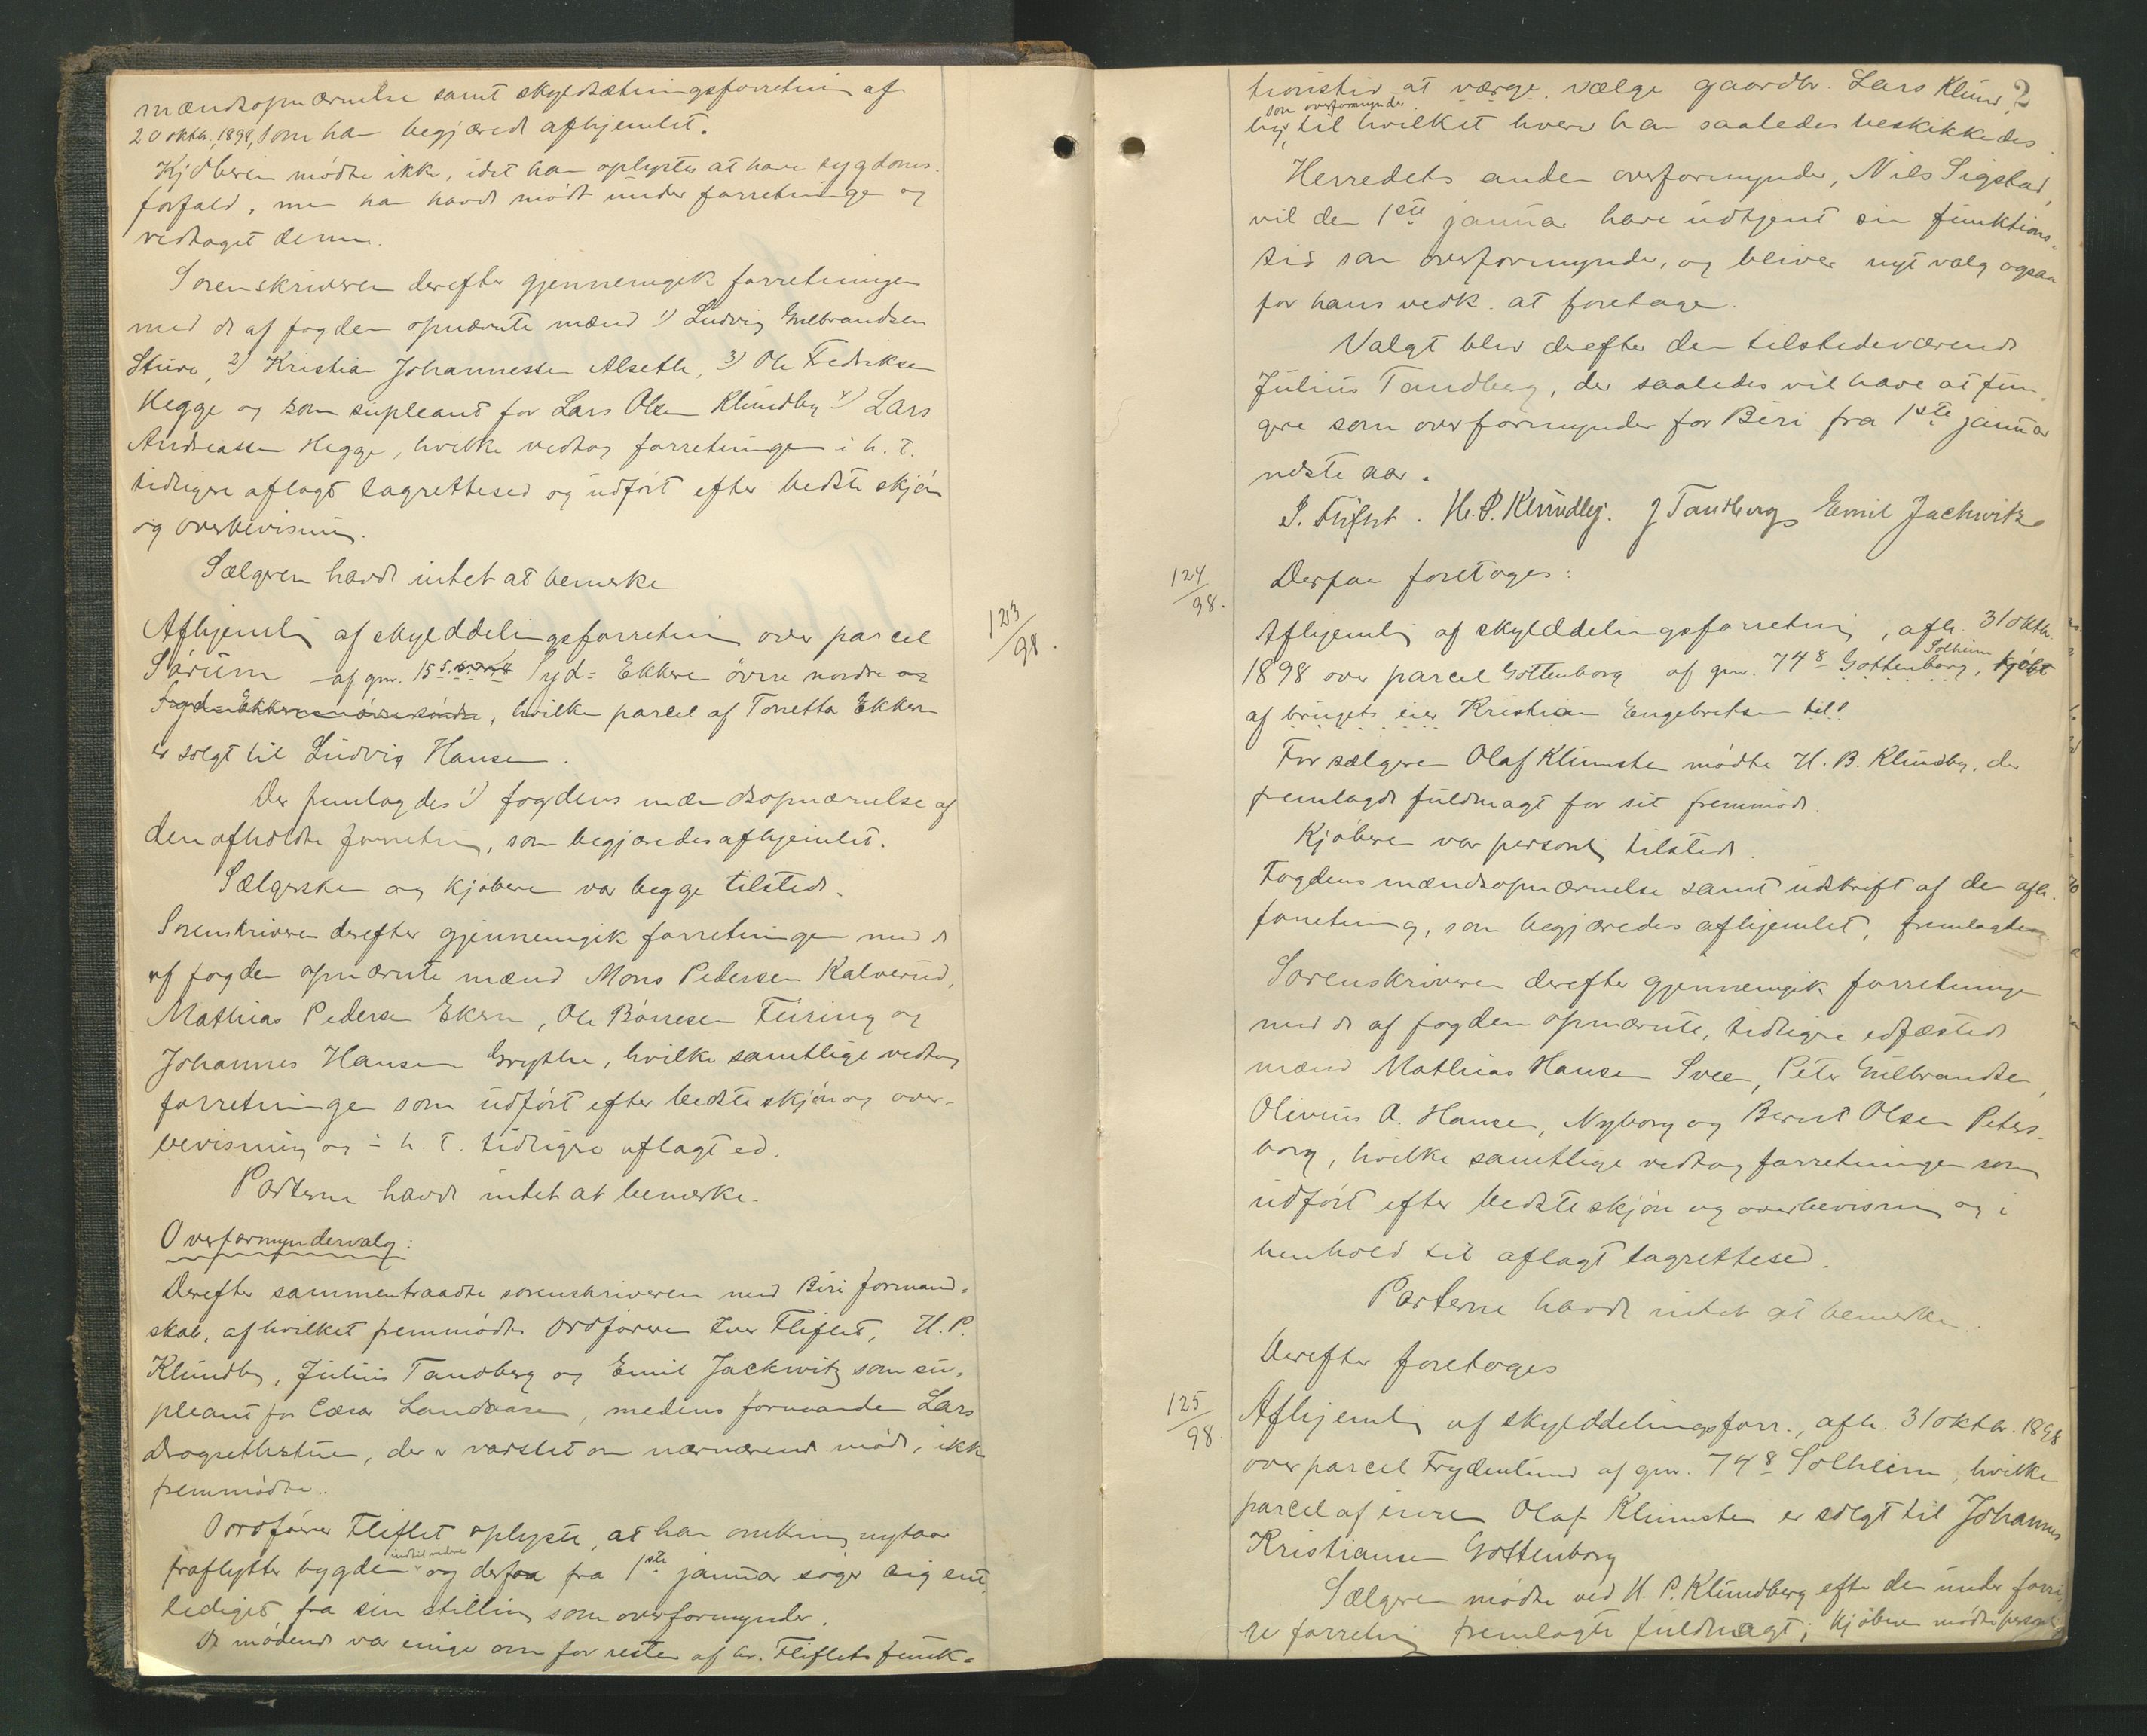 mændsopnævnelse samt skyldsætningsforretning af
20 oktbr. 1898, som han begjærede afhjemlet.
Kjøberen mødte ikke, idet han oplystes at have sygdoms-
forfald, men han havde mødt under forretningen og
vedtaget denne.
Sorenskriveren derefter gjennemgik forretningen
med de af fogden opnævnte mænd 1) Ludvig Gulbrandsen
Sture, 2) Kristian Johannessen Alseth, 3) Ole Fredriksen
Hegge og som supleant for Lars Olsen Klundby 4) Lars
Andreassen Hegge, hvilke vedtog forretningen i h. t.
tidligere aflagt lagrettesed og udført efter bedste skjøn
og overbevisning.
Sælgeren havde intet at bemerke
123/98.
Afhjemling af skylddelingsforretning over parcel
Sørum af gno. 15 5 Syd-Ekkern øvre nordre og
Syd-Ekkern øvre søndre, hvilken parcel af Tonetta Ekkern
er solgt til Ludvig Hansen.
Der fremlagdes 1) fogdens mændsopnævnelse af
den afholdte forretning, som begjæredes afhjemlet.
Sælgersken og kjøberen var begge tilstede.
Sorenskriveren derefter gjennemgik forretningen med de
af fogden opnævnte mænd Mons Pedersen Kalverud,
Mathias Pedersen Ekern, Ole Børresen Feiring og
Johannes Hansen Grythe, hvilke samtlige vedtog
forretningen som udført efter bedste skjøn og over-
bevisning og i h. t. tidligere aflagt ed.
Parterne havde intet at bemerke.
Overformyndervalg:
Derefter sammentraadte sorenskriveren med Biri formand-
skab, af hvilket fremmødte Ordføreren Iver Fliflet, H. P.
Klundby, Julius Tandberg og Emil Jackwitz som su-
pleant for Cæsar Landaasen, medens formanden Lars
Drogsethstuen, der er varslet om nærværende møde, ikke
fremmødte.
Ordfører Fliflet oplyste, at han omkring nytaar
fraflytter bygden indtil videre og derfor fra 1ste januar søger sig ent-
lediget fra sin stilling som overformynder.
De mødende var enige om for resten af hr. Fliflets funk-
2
tionstid at værge. vælge gaardbr. Lars Klund-
by, som overformynder til hvilket hverv han saaledes beskikkedes.
Herredets anden overformynder, Nils Sigstad,
vil den 1ste januar have udtjent sin funktions-
tid som overformynder, og bliver nyt valg ogsaa
for hans vedk. at foretage.
Valgt blev derefter den tilstedeværende
Julius Tandberg, der saaledes vil have at fun-
gere som overformynder for Biri fra 1ste januar
neste aar.
I. Fliflet. H. P. Klundby. J Tandberg Emil Jackwitz
124/98.
Derpaa foretoges:
Afhjemling af skylddelingsforretning, afh. 31 oktbr.
1898 over parcel Gottenborg af gno. 74 8 Solheim Gottenborg, kjøbt
af brugets eier Kristian Engebretsen til
For sælgeren Olaf Klumsten mødte H. B. Klundby, der
fremlagde fuldmagt for sit fremmøde.
Kjøberen var personlig tilstede.
Fogdens mændsopnævnelse samt udskrift af den afh.
forretning, som begjæredes afhjemlet, fremlagdes
Sorenskriveren derefter gjennemgik forretningen
med de af fogden opnævnte, tidligere edfæstede
mænd Mathias Hansen Svee, Peter Gulbrandsen,
Olivius A. Hansen, Nyborg og Bernt Olsen Peters-
borg, hvilke samtlige vedtog forretningen som
udført efter bedste skjøn og overbevisning og i
henhold til aflagt lagrettesed.
Parterne havde intet at bemerke.
Derefter foretoges
125/98.
Afhjemling af skylddelingsforr., afh. 31 oktbr. 1898
over parcel Frydenlund af gno. 74 8 Solheim, hvilken
parcel af eieren Olaf Klumsten er solgt til Johannes
Kristiansen Gottenborg
Sælgeren mødte ved H. P. Klundberg efter den under forri-
ge forretning fremlagte fuldmagt; kjøberen mødte personlig